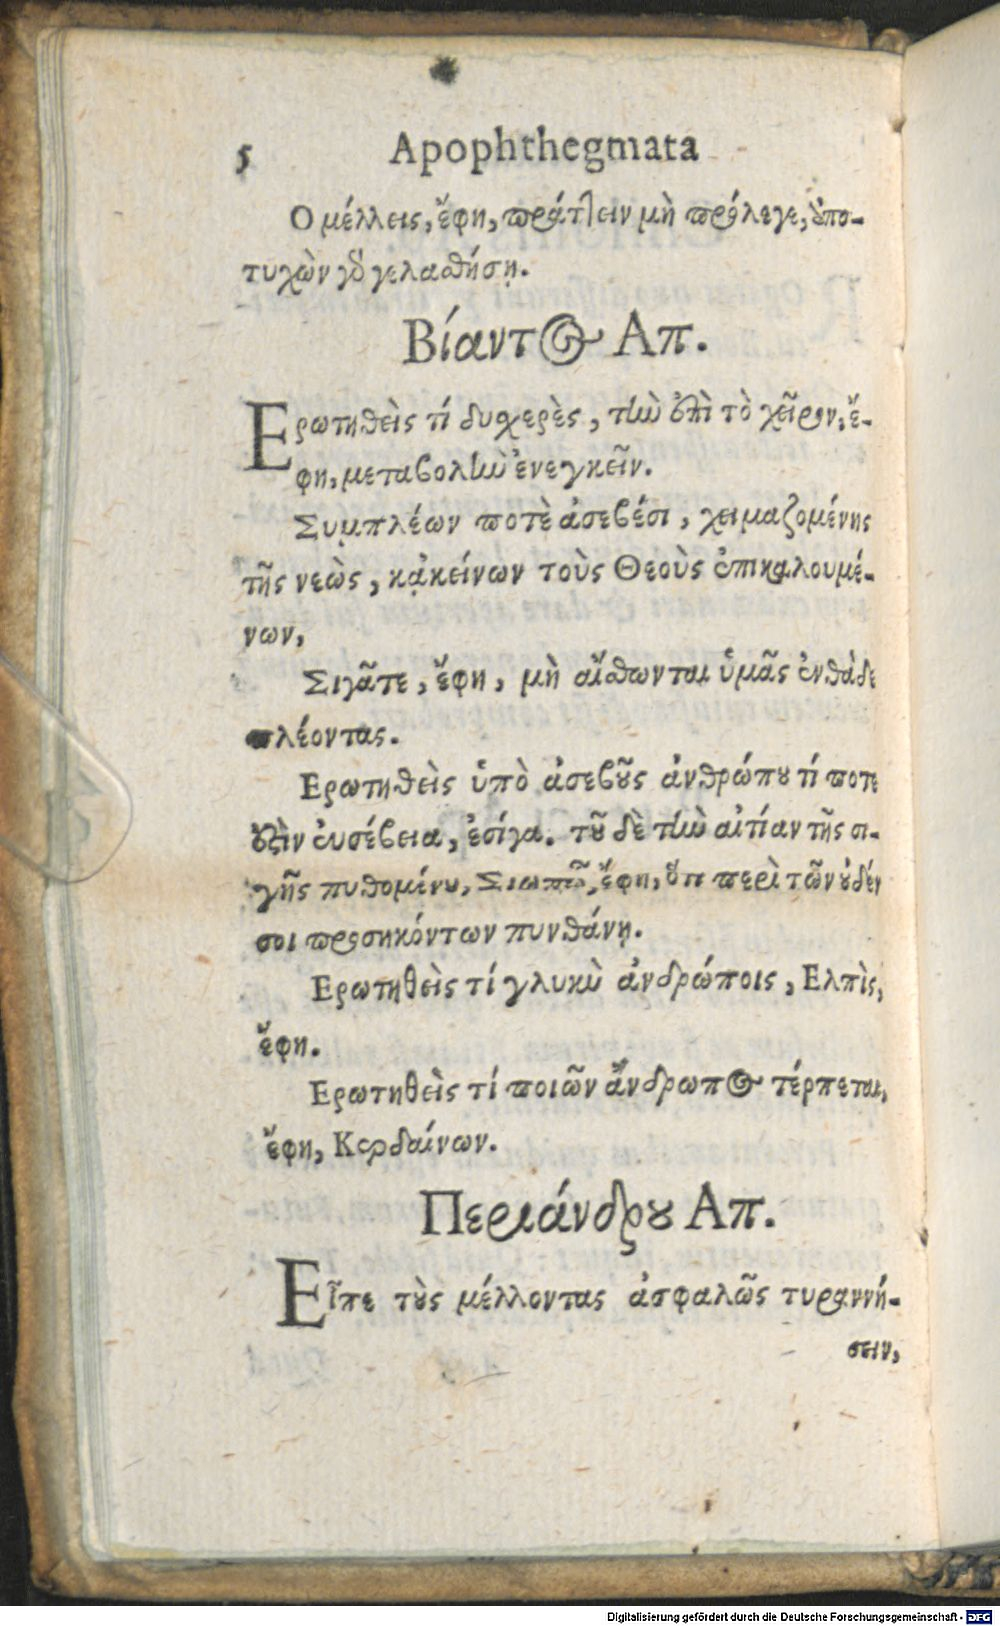 5 Apophthegmata
Ο μέλλεις, ἔφη, πράττειν μὴ πρόλεγε, ἀπο-
τυχὼν γὸ γελαθήσῃ.
Βίαντος Απ.
Ερωτηθεὶς τί δυχερὲς, τὴν ἐπὶ τὸ χεῖρον, ἔ-
φη, μεταβολὴν ἐνεγκεῖν.
Συμπλέων ποτὲ ἀσεβέσι, χειμαζομένης
τῆς νεὼς, κᾀκείνων τοὺς Θεοὺς ἐπικαλουμέ-
νων,
Σιγᾶτε, ἔφη, μὴ αἴσθωνται ὑμᾶς ἐνθάδε
πλέοντας.
Ερωτηθεὶς ὑπὸ ἀσεβοῦς ἀνθρώπου τί ποτε
ὅξὶν εὐσέβεια, ἐσίγα. τοῦ δὲ τὴν αἰτίαν τῆς σι-
γῆς πυθομένου, Σιωπῶ, ἔφη, ὅτι περὶ τῶν οὐδέν
σοι προσηκόντων πυνθάνῃ.
Ερωτηθεὶς τί γλυκὺ ἀνθρώποις, Ελπὶς,
ἔφη.
Ερωτηθεὶς τί ποιῶν ἄνθρωπος τέρπεται,
ἔφη, Κερδαίνων.
Περιάνδρου Απ.
Εἶπε τοὺς μέλλοντας ἀσφαλῶς τυραννή-
σειν,
Digitalisierung gefördert durch die Deutsche Forschungsgemeinschaft - DFG